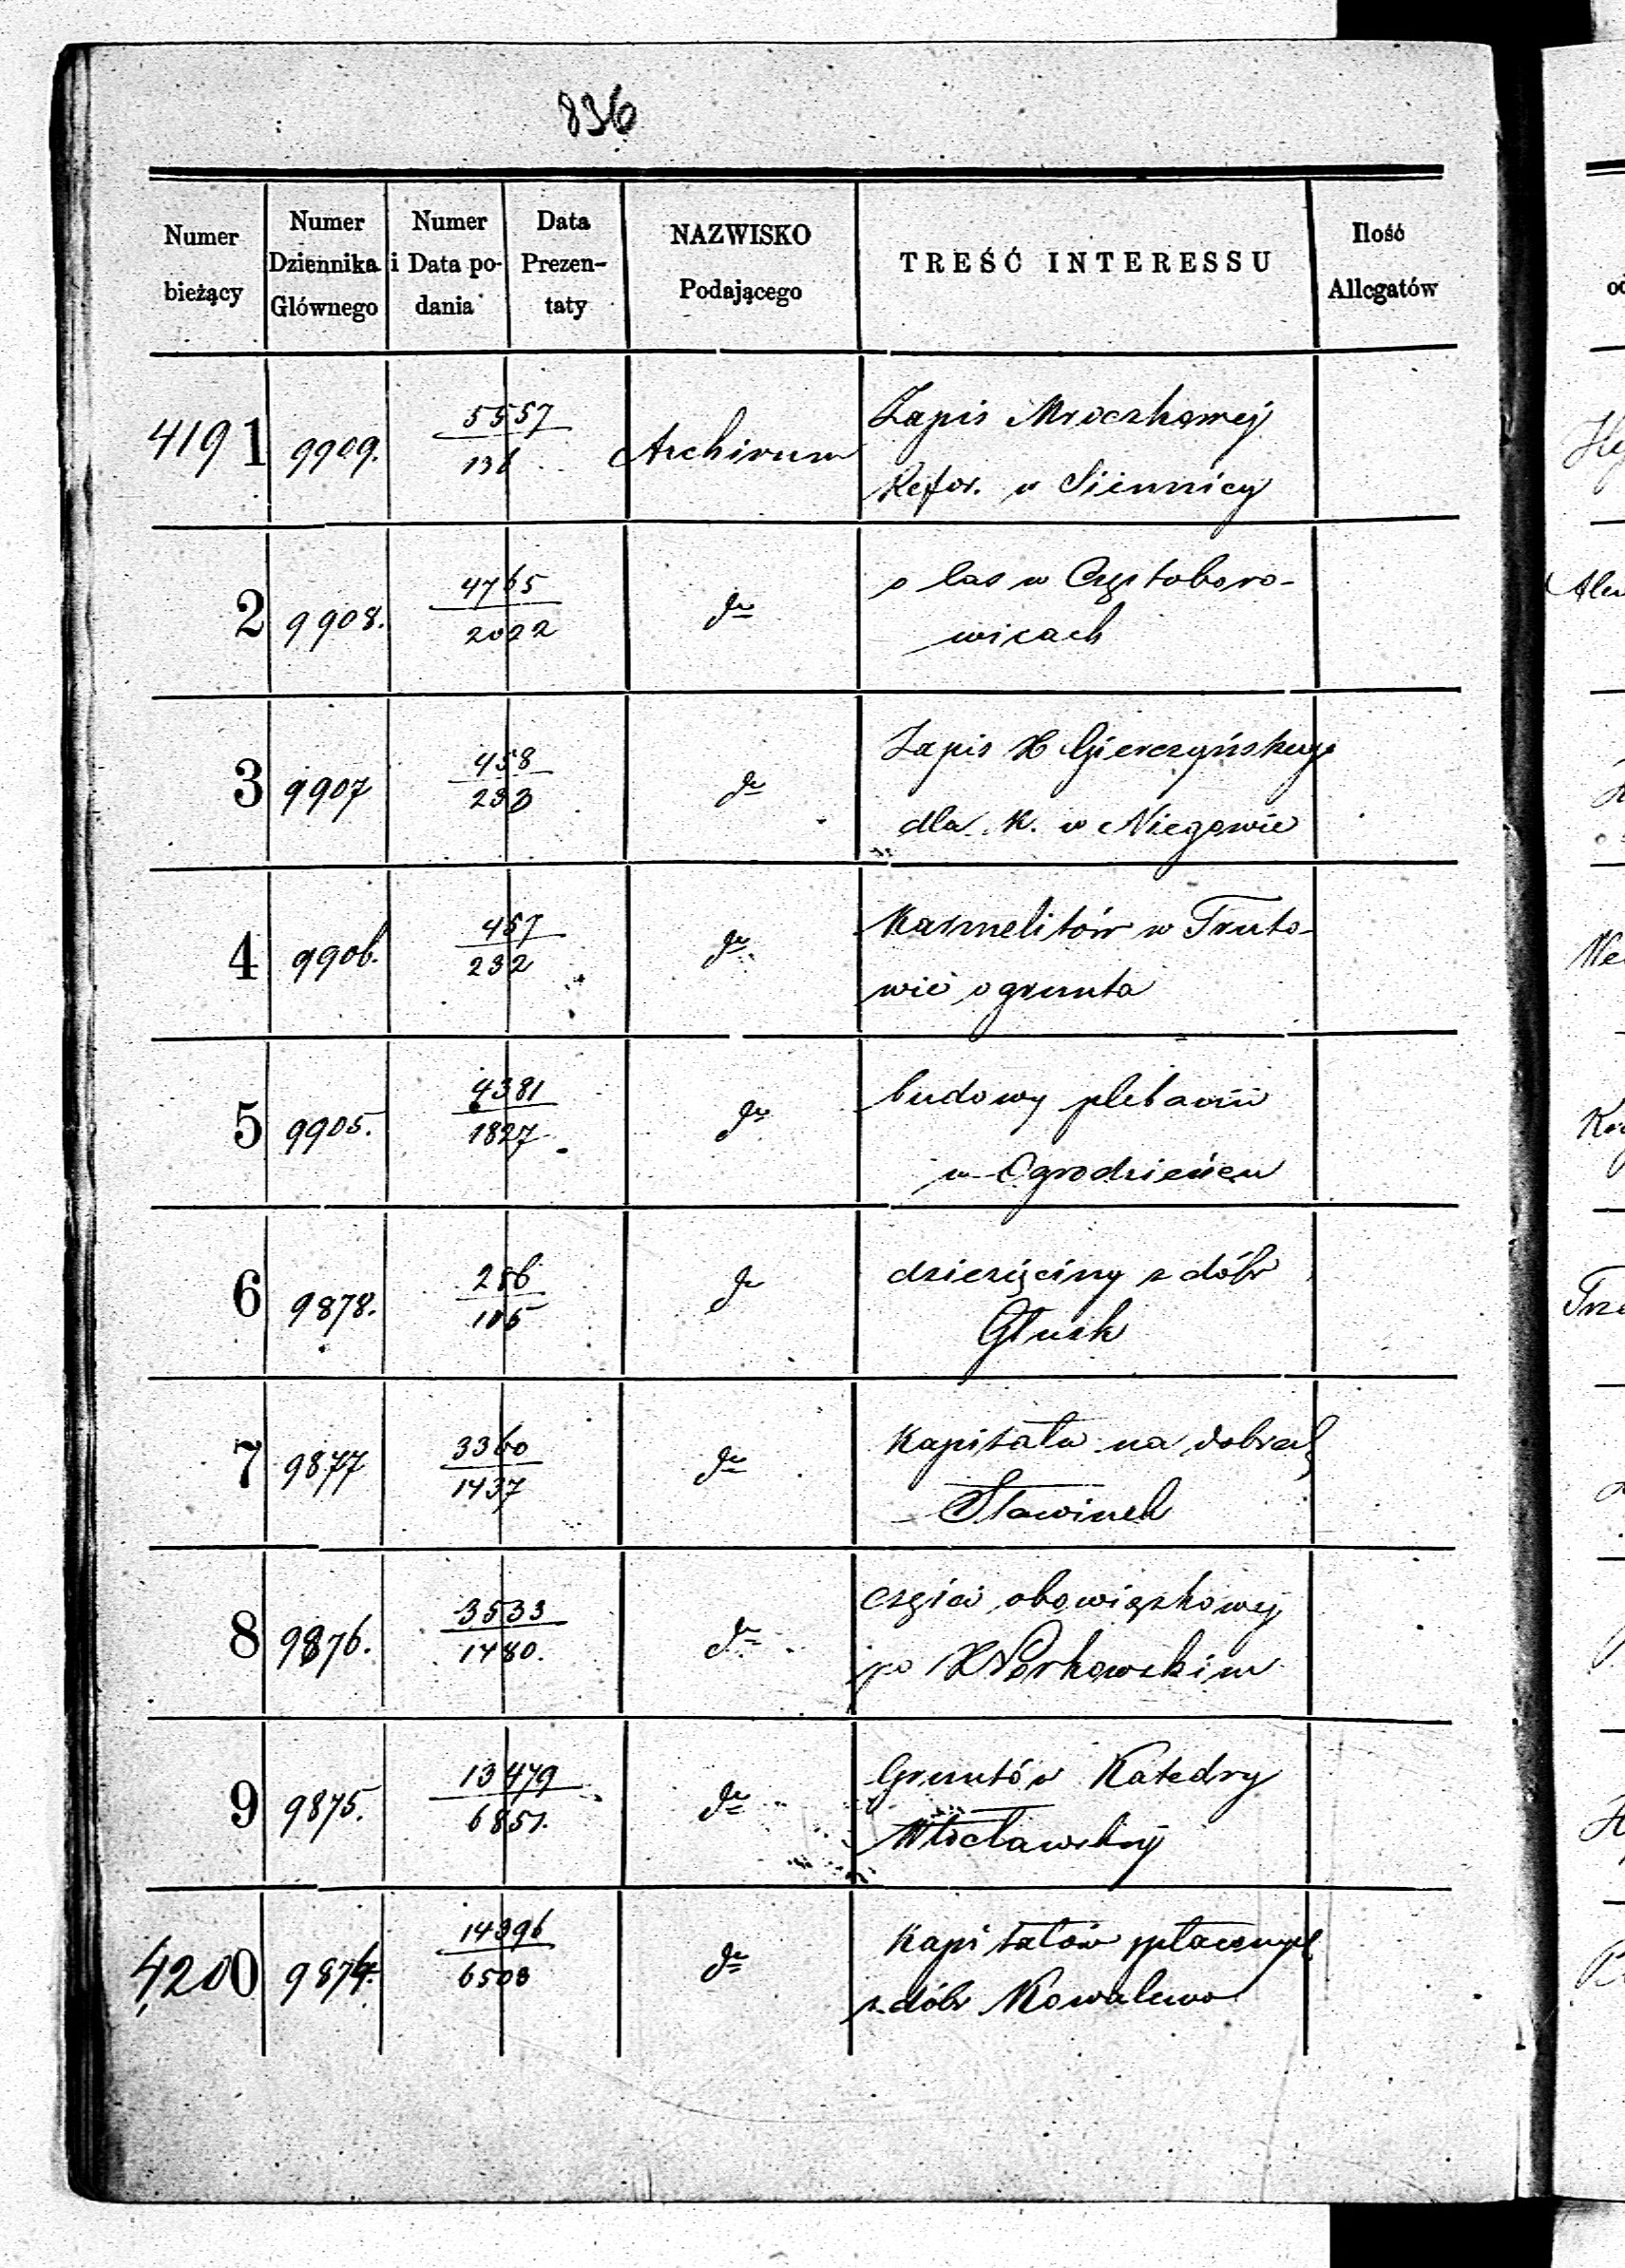 836
Numer bieżący
Numer Dziennika Głównego
Numer i Data podania
Data Prezentaty
NAZWISKO Podającego
TREŚĆ INTERESSU
Ilość Allegatów
4191 9909. 5557 Archivum Zapis Mroczkowej
136 Refor. w Siennicy
2 9908. 4765 do o las w Częstoboro-
2022 wicach
3 9907 458 do Zapis X Gierczyńskiego
233 dla K. w Niegowie
4 9906. 457 do Karmelitów w Truto-
232 wie o grunta
5 9905. 4381 do budowy plebanii
1827 w Ogrodzieńcu
6 9878. 256 do dziesięciny z dóbr
105 Głusk
7 9877 3360 do Kapitału na dobrach
1437 Sławinek
8 9876. 3533 do części obowiązkowej
1480. po X
9 9875. 13479 do Gruntów Katedry
6851. Włocławskiej
4200 9874. 14396 do Kapitałów płaconych
6503 z dóbr Kowalewo